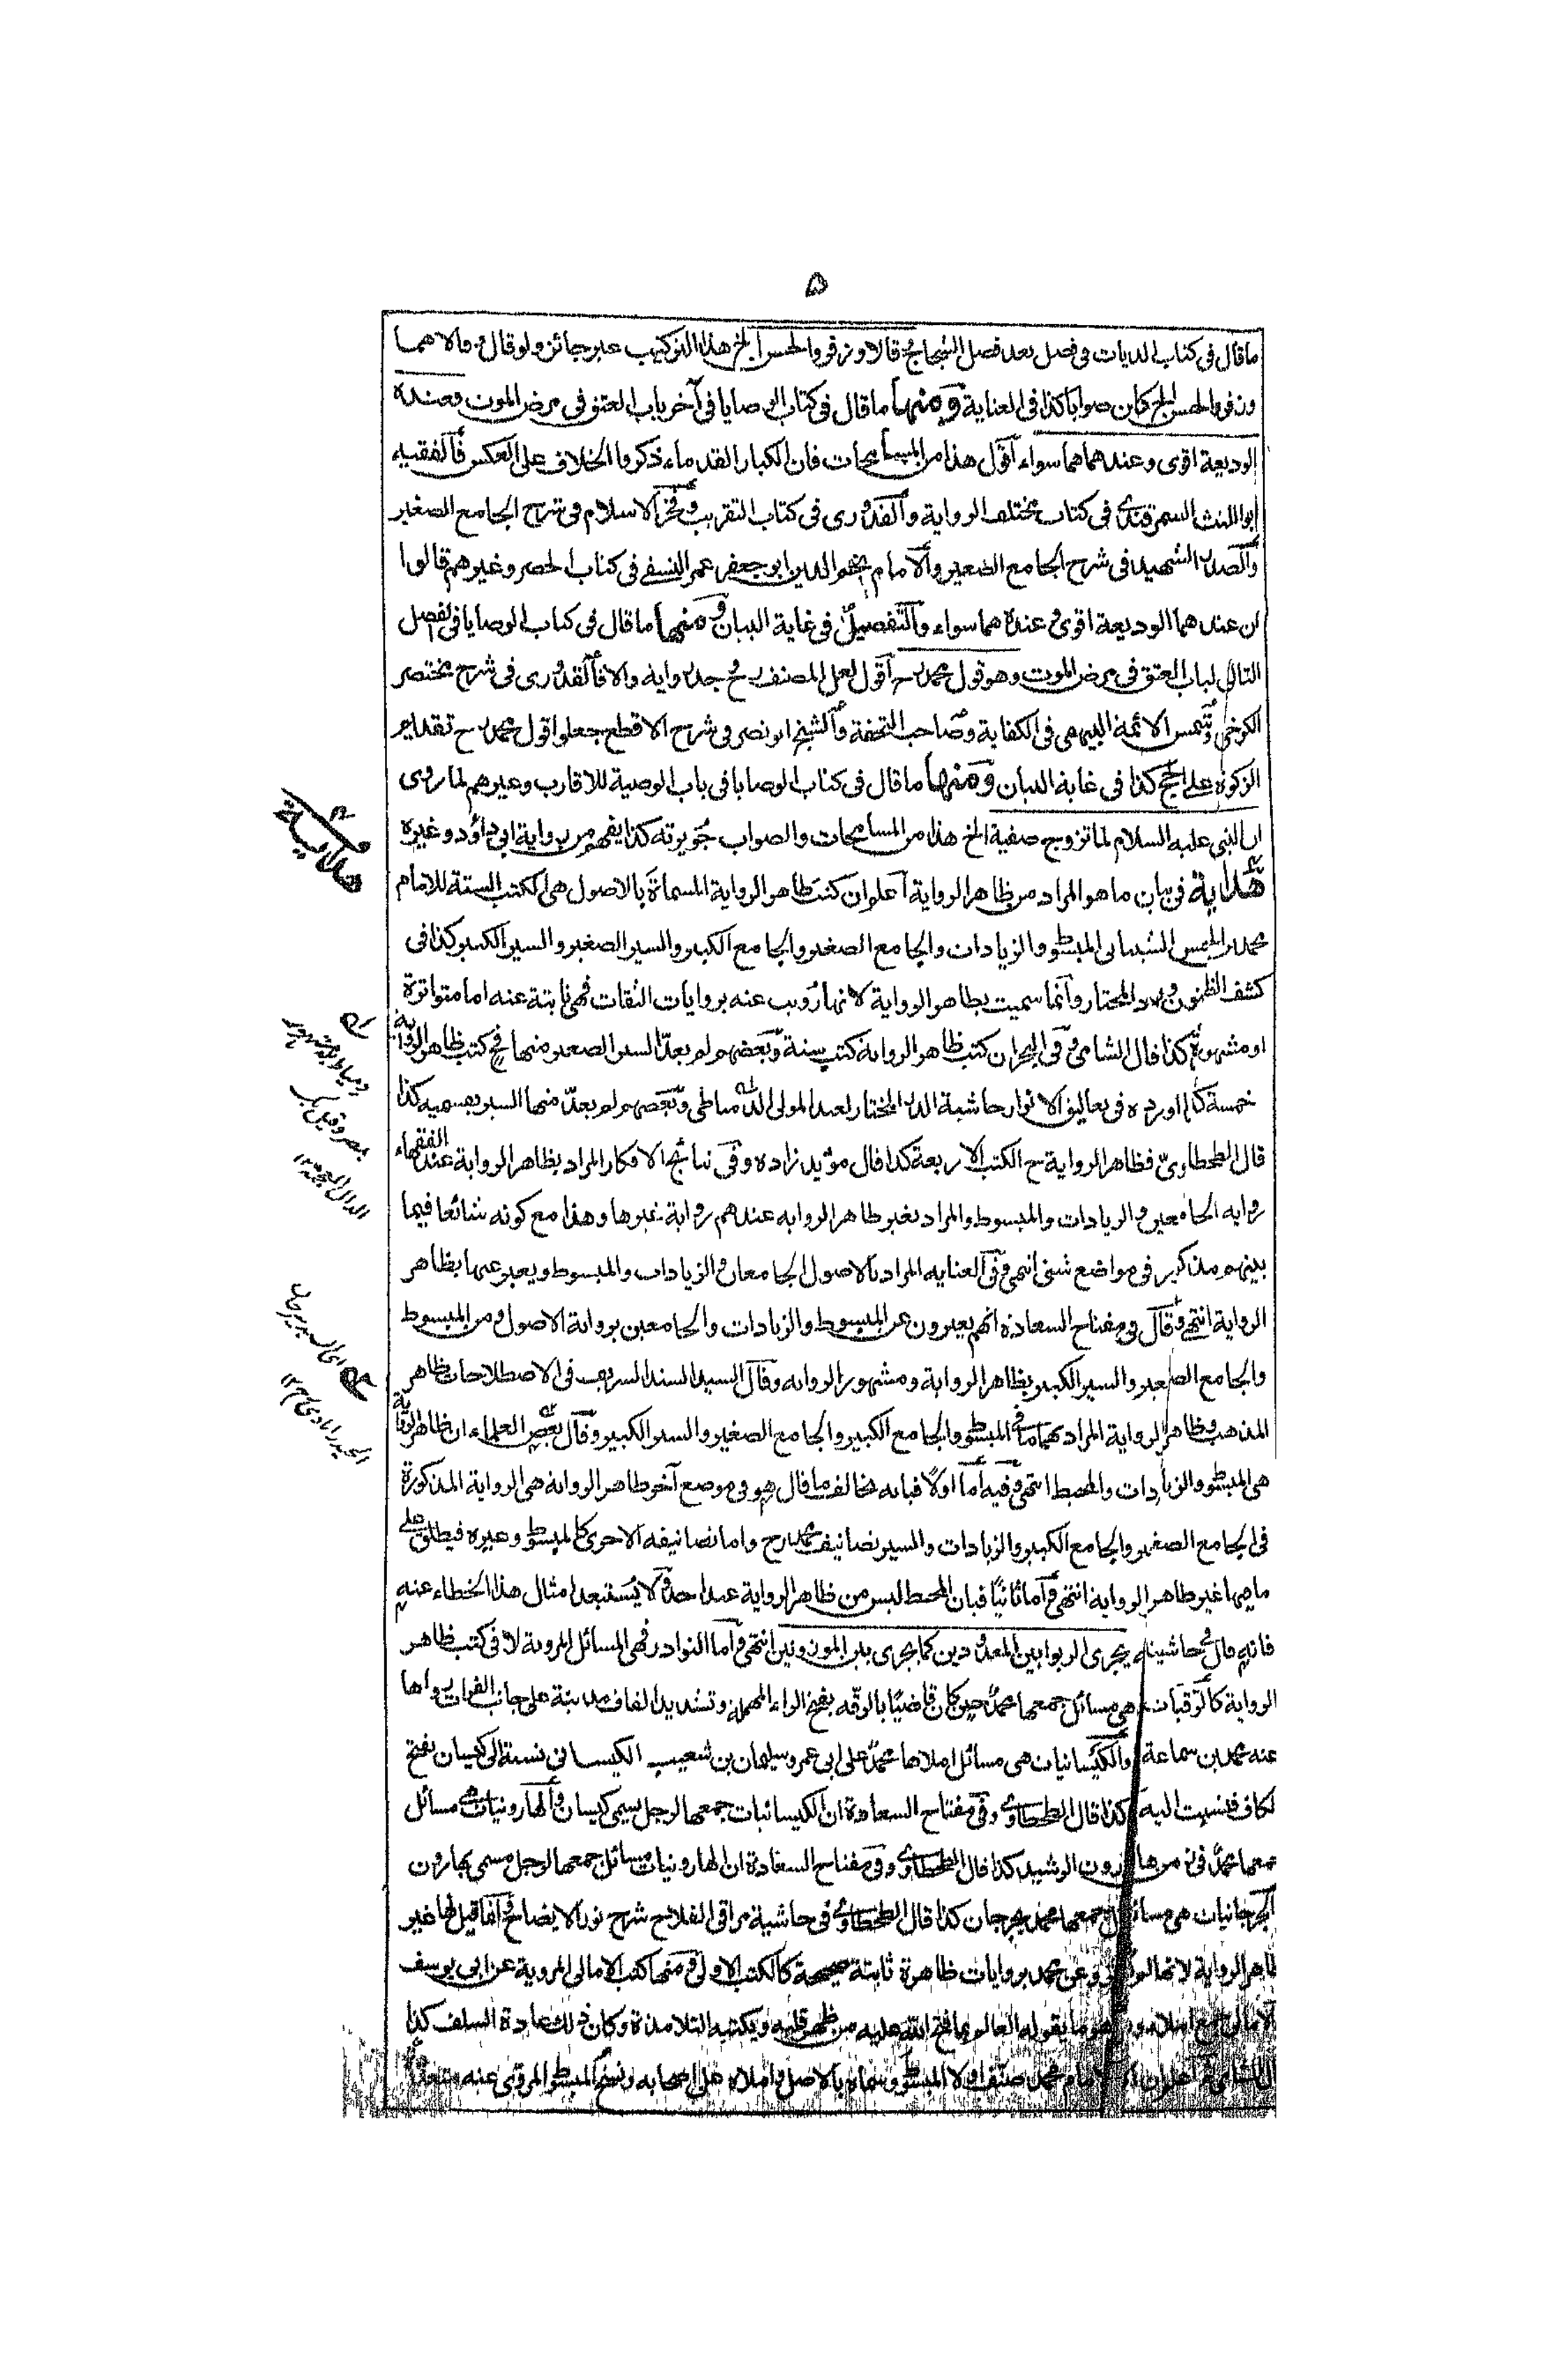 ۵
ما قال فى كتاب الديات فى فصل بعد فصل الشجاج قالا وزفر والحسن الخ هذا التركيب غير جائز ولو قال قالا هما
وزفر والحسن الخ كان صوابا كذا فى العناية ومنها ما قال فى كتاب الوصايا فى آخر باب العتق فى مرض الموت وعنده
الوديعة اقوى وعندهما هما سواء اقول هذا من المسامحات فان الكبار القدماء ذكروا الخلاف على العكس فالفقيه
ابو الليث السمرقندى فى كتاب مختلف الرواية والقدورى فى كتاب التقريب وفخر الاسلام فى شرح الجامع الصغير
والصدر الشهيد فى شرح الجامع الصغير والامام نجم الدين ابو جعفر عمر النسفى فى كتاب الحصر وغيرهم قالوا
ان عندهما الوديعة اقوى وعنده هما سواء والتفصيل فى غاية البيان ومنها ما قال فى كتاب الوصايا فى الفصل
التالى لباب العتق فى مرض الموت وهو قول محمد رح اقول لعل المصنف رح وجد رواية والا فالقدورى فى شرح مختصر
الكرخى وشمس الائمة البيهقى فى الكفاية وصاحب التحفة والشيخ ابو نصر فى شرح الاقطع جعلوا قول محمد رح تقديم
الزكوة على الحج كذا فى غاية البيان ومنها ما قال فى كتاب الوصايا فى باب الوصية للاقارب وغيرهم لما روى
ان النبى عليه السلام لما تزوج صفية الخ هذا من المسامحات والصواب جويرته كذا يفهم من رواية ابى داؤد وغيره
هداية فى بيان ما هو المراد من ظاهر الرواية اعلم ان كتب ظاهر الرواية المسماة بالاصول هى الكتب الستة للامام
محمد بن الحسن الشيبانى المبسوط والزيادات والجامع الصغير والجامع الكبير والسير الصغير والسير الكبير كذا فى
كشف الظنون ورد المحتار وانما سميت بظاهر الرواية لانها رويت عنه بروايات الثقات فهى ثابتة عنه اما متواترة
او مشهورة كذا قال الشامى وفى البحر ان كتب ظاهر الرواية كتب ستة وبعضهم لم يعدّ السير الصغير منها فح كتب ظاهر الرواية
خمسة كذا اورده فى تعاليق الانوار حاشية الدر المختار لعبد المولى الدمياطى وبعضهم لم يعدّ منها السير بقسميه كذا
قال الطحطاوىّ فظاهر الرواية ح الكتب الاربعة كذا قال مؤيد زاده وفى نتائج الافكار المراد بظاهر الرواية عند الفقهاء
رواية الجامعين والزيادات والمبسوط والمراد بغير ظاهر الرواية عندهم رواية غيرها وهذا مع كونه شائعا فيما
بينهم مذكور فى مواضع شتى انتهى وفى العناية المراد بالاصول الجامعان والزيادات والمبسوط ويعبر عنها بظاهر
الرواية انتهى وقال فى مفتاح السعادة انهم يعبرون عن المبسوط والزيادات والجامعين برواية الاصول ومن المبسوط
والجامع الصغير والسير الكبير بظاهر الرواية ومشهور الرواية وقال السيد السند الشريف فى الاصطلاحات ظاهر
المذهب وظاهر الرواية المراد بهما ما فى المبسوط والجامع الكبير والجامع الصغير والسير الكبير وقال بعض العلماء ان ظاهر الرواية
هى المبسوط والزيادات والمحيط انتهى وفيه اما اولًا فبانه مخالف ما قال هو فى موضع آخر ظاهر الرواية هى الرواية المذكورة
فى الجامع الصغير والجامع الكبير والزيادات والسير تصانيف محمد رح واما تصانيفه الاخرى كالمبسوط وغيره فيطلق على
ما فيها غير ظاهر الرواية انتهى واما ثانيًا فبان المحيط ليس من ظاهر الرواية عند احد ولا يستبعد امثال هذا الخطاء عنه
فانه قال فى حاشية يجرى الربوا بين المعدودين كما يجرى بين الموزونين انتهى واما النوادر فهى المسائل المروية لا فى كتب ظاهر
الرواية كالرقيات هى مسائل جمعها محمدٌ حين كان قاضيًا بالرقه بفتح الراء المهملة وتشديد القاف مدينة على جانب الفرات رواها
عنه محمد بن سماعة والكيسانيات هى مسائل املاها محمدٌ على ابى عمرو سليمان بن شعيب الكيسانى نسبة الى كيسان بفتح
لكاف فنسبت اليه كذا قال الطحطاوى وفى مفتاح السعادة ان الكيسانيات جمعها لرجل يسمى كيسان والهارونيات هى مسائل
جمعها محمدٌ فى زمن هارون الرشيد كذا قال الطحطاوى وفى مفتاح السعادة ان الهارونيات مسائل جمعها لرجل مسمى بهارون
الجرجانيات هى مسائل جمعها محمد بجرجان كذا قال الطحطاوى فى حاشية مراقى الفلاح شرح نور الايضاح وانما قيل لها غير
ظاهر الرواية لانها لم ترو عن محمد بروايات ظاهرة ثابتة صحيحة كالكتب الاولى ومنها كتب الامالى المروية عن ابى يوسف
الامالى جمع املاء وهو ما يقوله العالم بما فتح الله عليه من ظهر قلبه ويكتبه التلامذة وكان ذلك عادة السلف كذا
الامام محمد صنف اولا المبسوط وسماه بالاصل واملاه على اصحابه ونسخ المبسوط المروى عنه متعددة
هداية